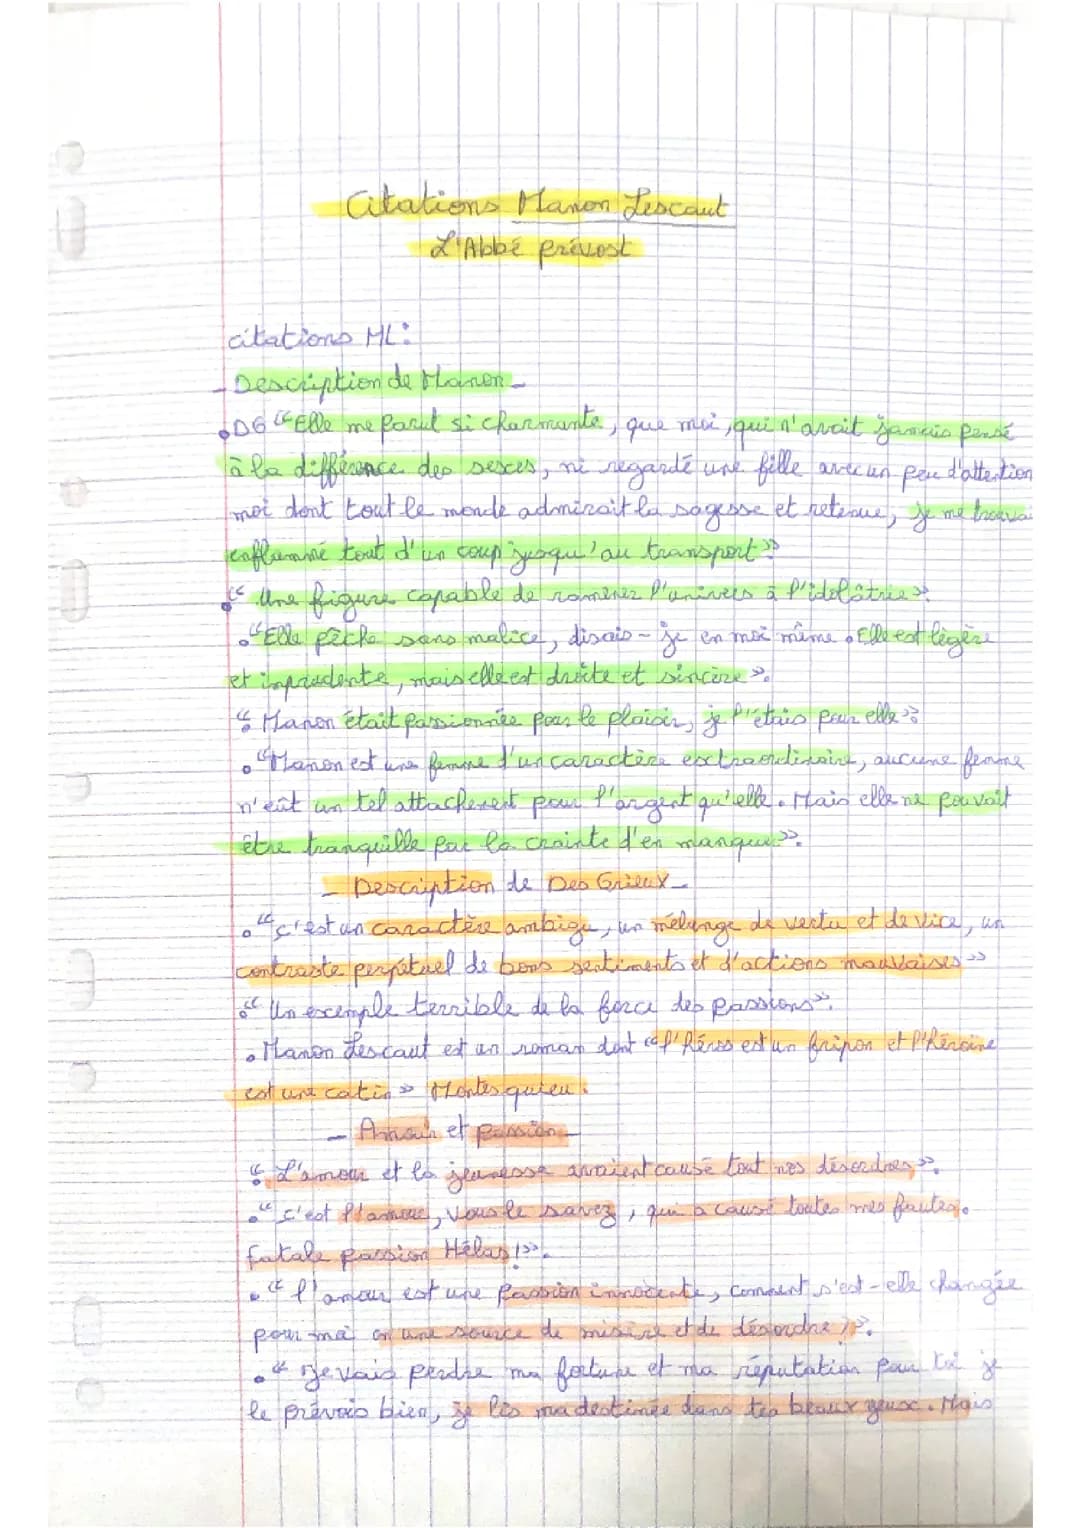 Citations Manon Lescaut
L'Abbé prévost
citations ML:
- Description de Manon -
• DG "Elle me parut si charmante, que moi, qui n'avait jamais pensé
à la différence des sexes, ni regardé une fille avec un peu d'attention
moi dont tout le monde admirait la sagesse et retenue, je me trouvai
enflammé tout d'un coup jusqu'au transport".
• "Une figure capable de ramener l'univers à l'idolâtrie".
• "Elle pèche sans malice, disais-je en moi même. Elle est légère
et imprudente, mais elle est droite et sincère".
• "Manon était passionnée pour le plaisir, je l'étais pour elle"
• "Manon est une femme d'un caractère extraordinaire, aucune femme
n'eût un tel attachement pour l'argent qu'elle. Mais elle ne pouvait
être tranquille par la crainte d'en manque".
- Description de Des Grieux -
• "c'est un caractère ambigu, un mélange de vertu et de vice, un
contraste perpétuel de bons sentiments et d'actions mauvaises"
• "Un exemple terrible de la force des passions".
• Manon Lescaut est un roman dont "l'héros est un fripon et l'héroïne
est une catin" Montesquieu.
- Amour et passion -
• "L'amour et la jeunesse avaient causé tout nos désordres".
• "c'est l'amour, vous le savez, qui a causé toutes mes fautes.
fatale passion Hélas !".
• "l'amour est une passion innocente, comment s'est-elle changée
pour moi en une source de misère et de désordre ?".
• "Je vais perdre ma fortune et ma réputation pour toi je
le prévois bien, je lis ma destinée dans tes beaux yeux. Mais